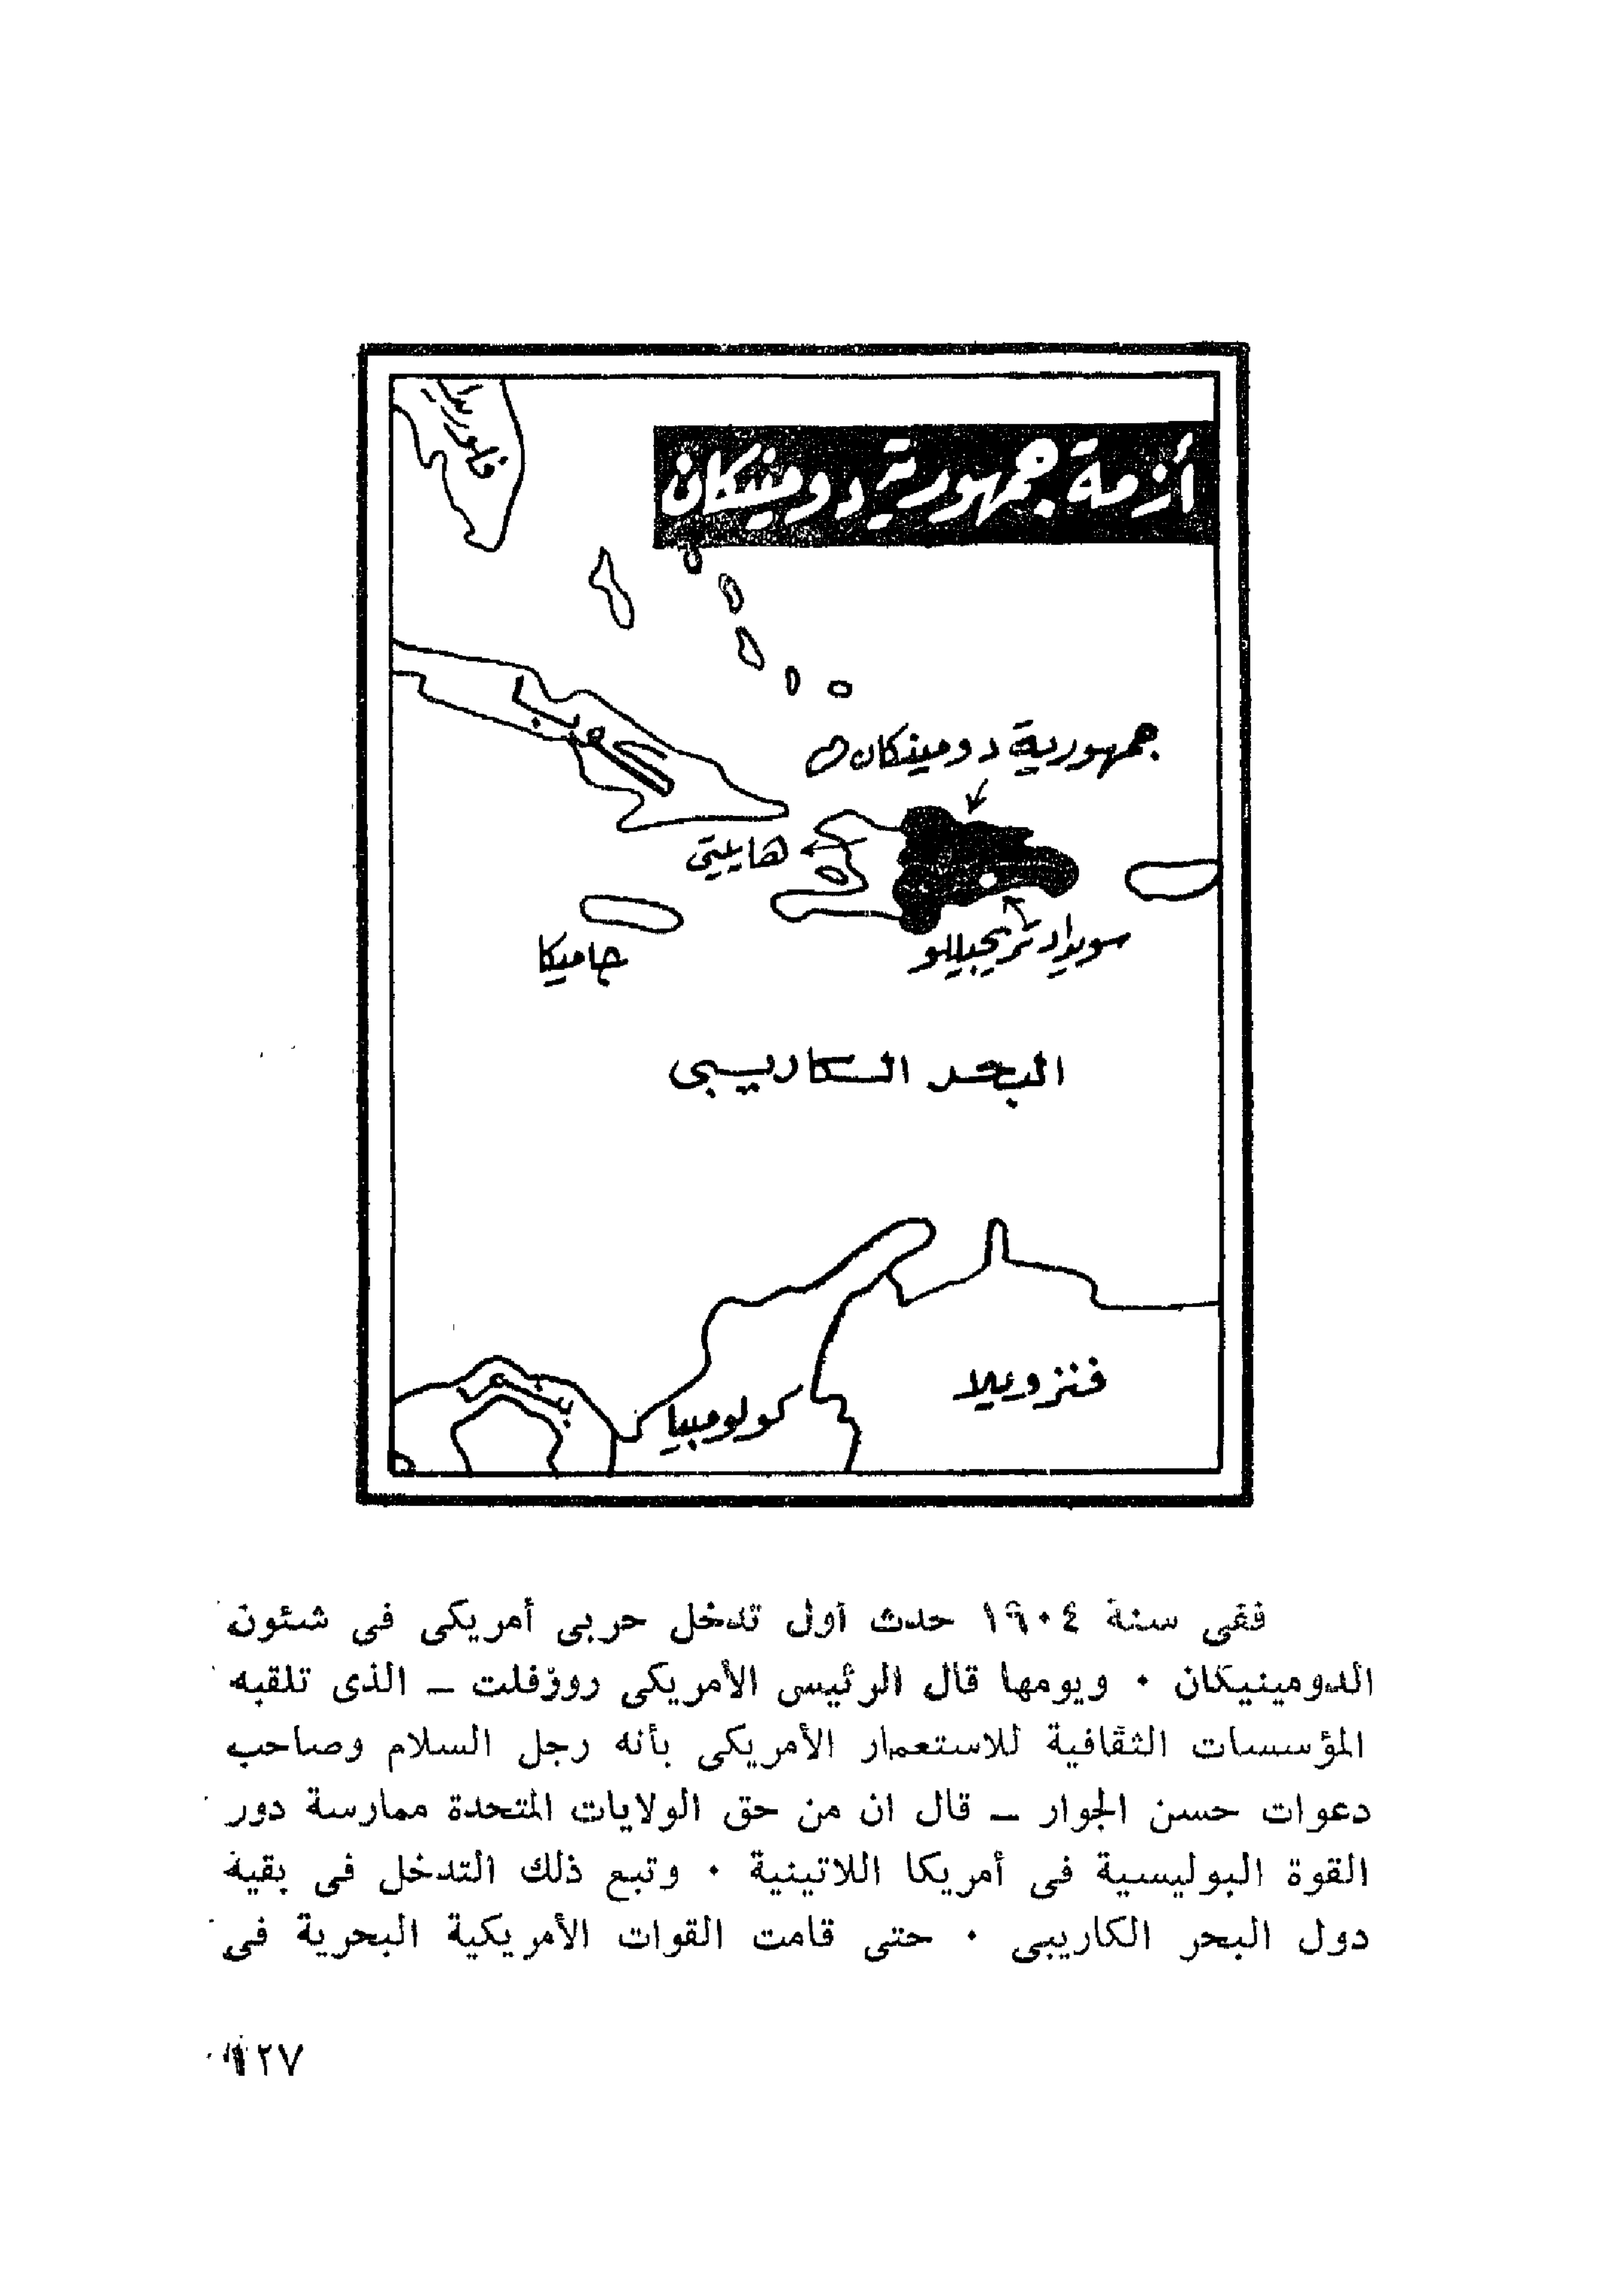 أزمة جمهورية دومنيكان
كوبا
جمهورية دومينكان
هايتي
سويداد تريجيللو
جاميكا
البحر الكاريبى
فنزويلا
كولومبيا
بنما
ففى سنة ١٩٠٤ حدث أول تدخل حربى أمريكى فى شئون
الدومينيكان ٠ ويومها قال الرئيس الأمريكى روزفلت ــ الذى تلقبه
المؤسسات الثقافية للاستعمار الأمريكى بأنه رجل السلام وصاحب
دعوات حسن الجوار ــ قال ان من حق الولايات المتحدة ممارسة دور
القوة البوليسية فى أمريكا اللاتينية ٠ وتبع ذلك التدخل فى بقية
دول البحر الكاريبى ٠ حتى قامت القوات الأمريكية البحرية فى
١٢٧